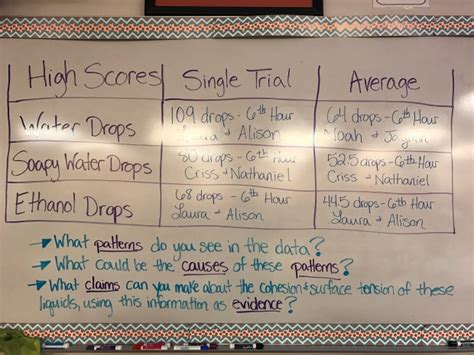 High Scores Single Trial Average
Water Drops
109 drops - 6th Hour
Laura + Alison
64 drops - 6th Hour
Noah +
Soapy Water Drops
80 drops - 6th Hour
Criss + Nathaniel
52.5 drops - 6th Hour
Criss + Nathaniel
Ethanol Drops
68 drops - 6th Hour
Laura + Alison
44.5 drops - 6th Hour
Laura + Alison
What patterns do you see in the data?
What could be the causes of these patterns?
What claims can you make about the cohesion + surface tension of these
liquids, using this information as evidence?